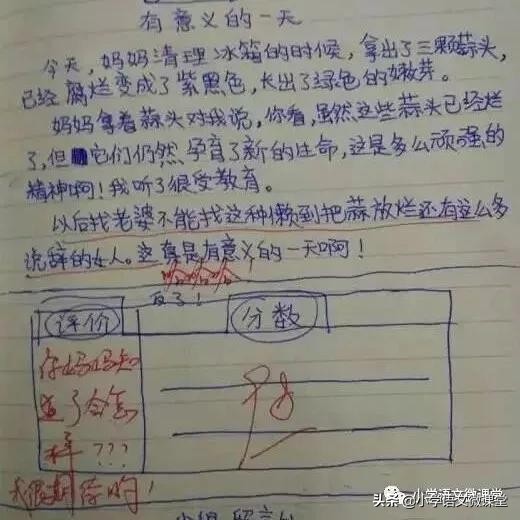 有意义的一天
今天，妈妈清理冰箱的时候，拿出了三颗蒜头，
已经腐烂变成了紫黑色，长出了绿色的嫩芽。
妈妈拿着蒜头对我说，你看，虽然这些蒜头已经烂
了，但它们仍然孕育了新的生命，这是多么顽强的
精神啊！我听了很受教育。
以后找老婆不能找这种懒到把蒜放烂还有这么多
说辞的女人。这真是有意义的一天啊！
哈哈哈
评价
分数
你妈妈知
道了会怎
样？？？
优
小学语文微课堂
头条@小学语文微课堂